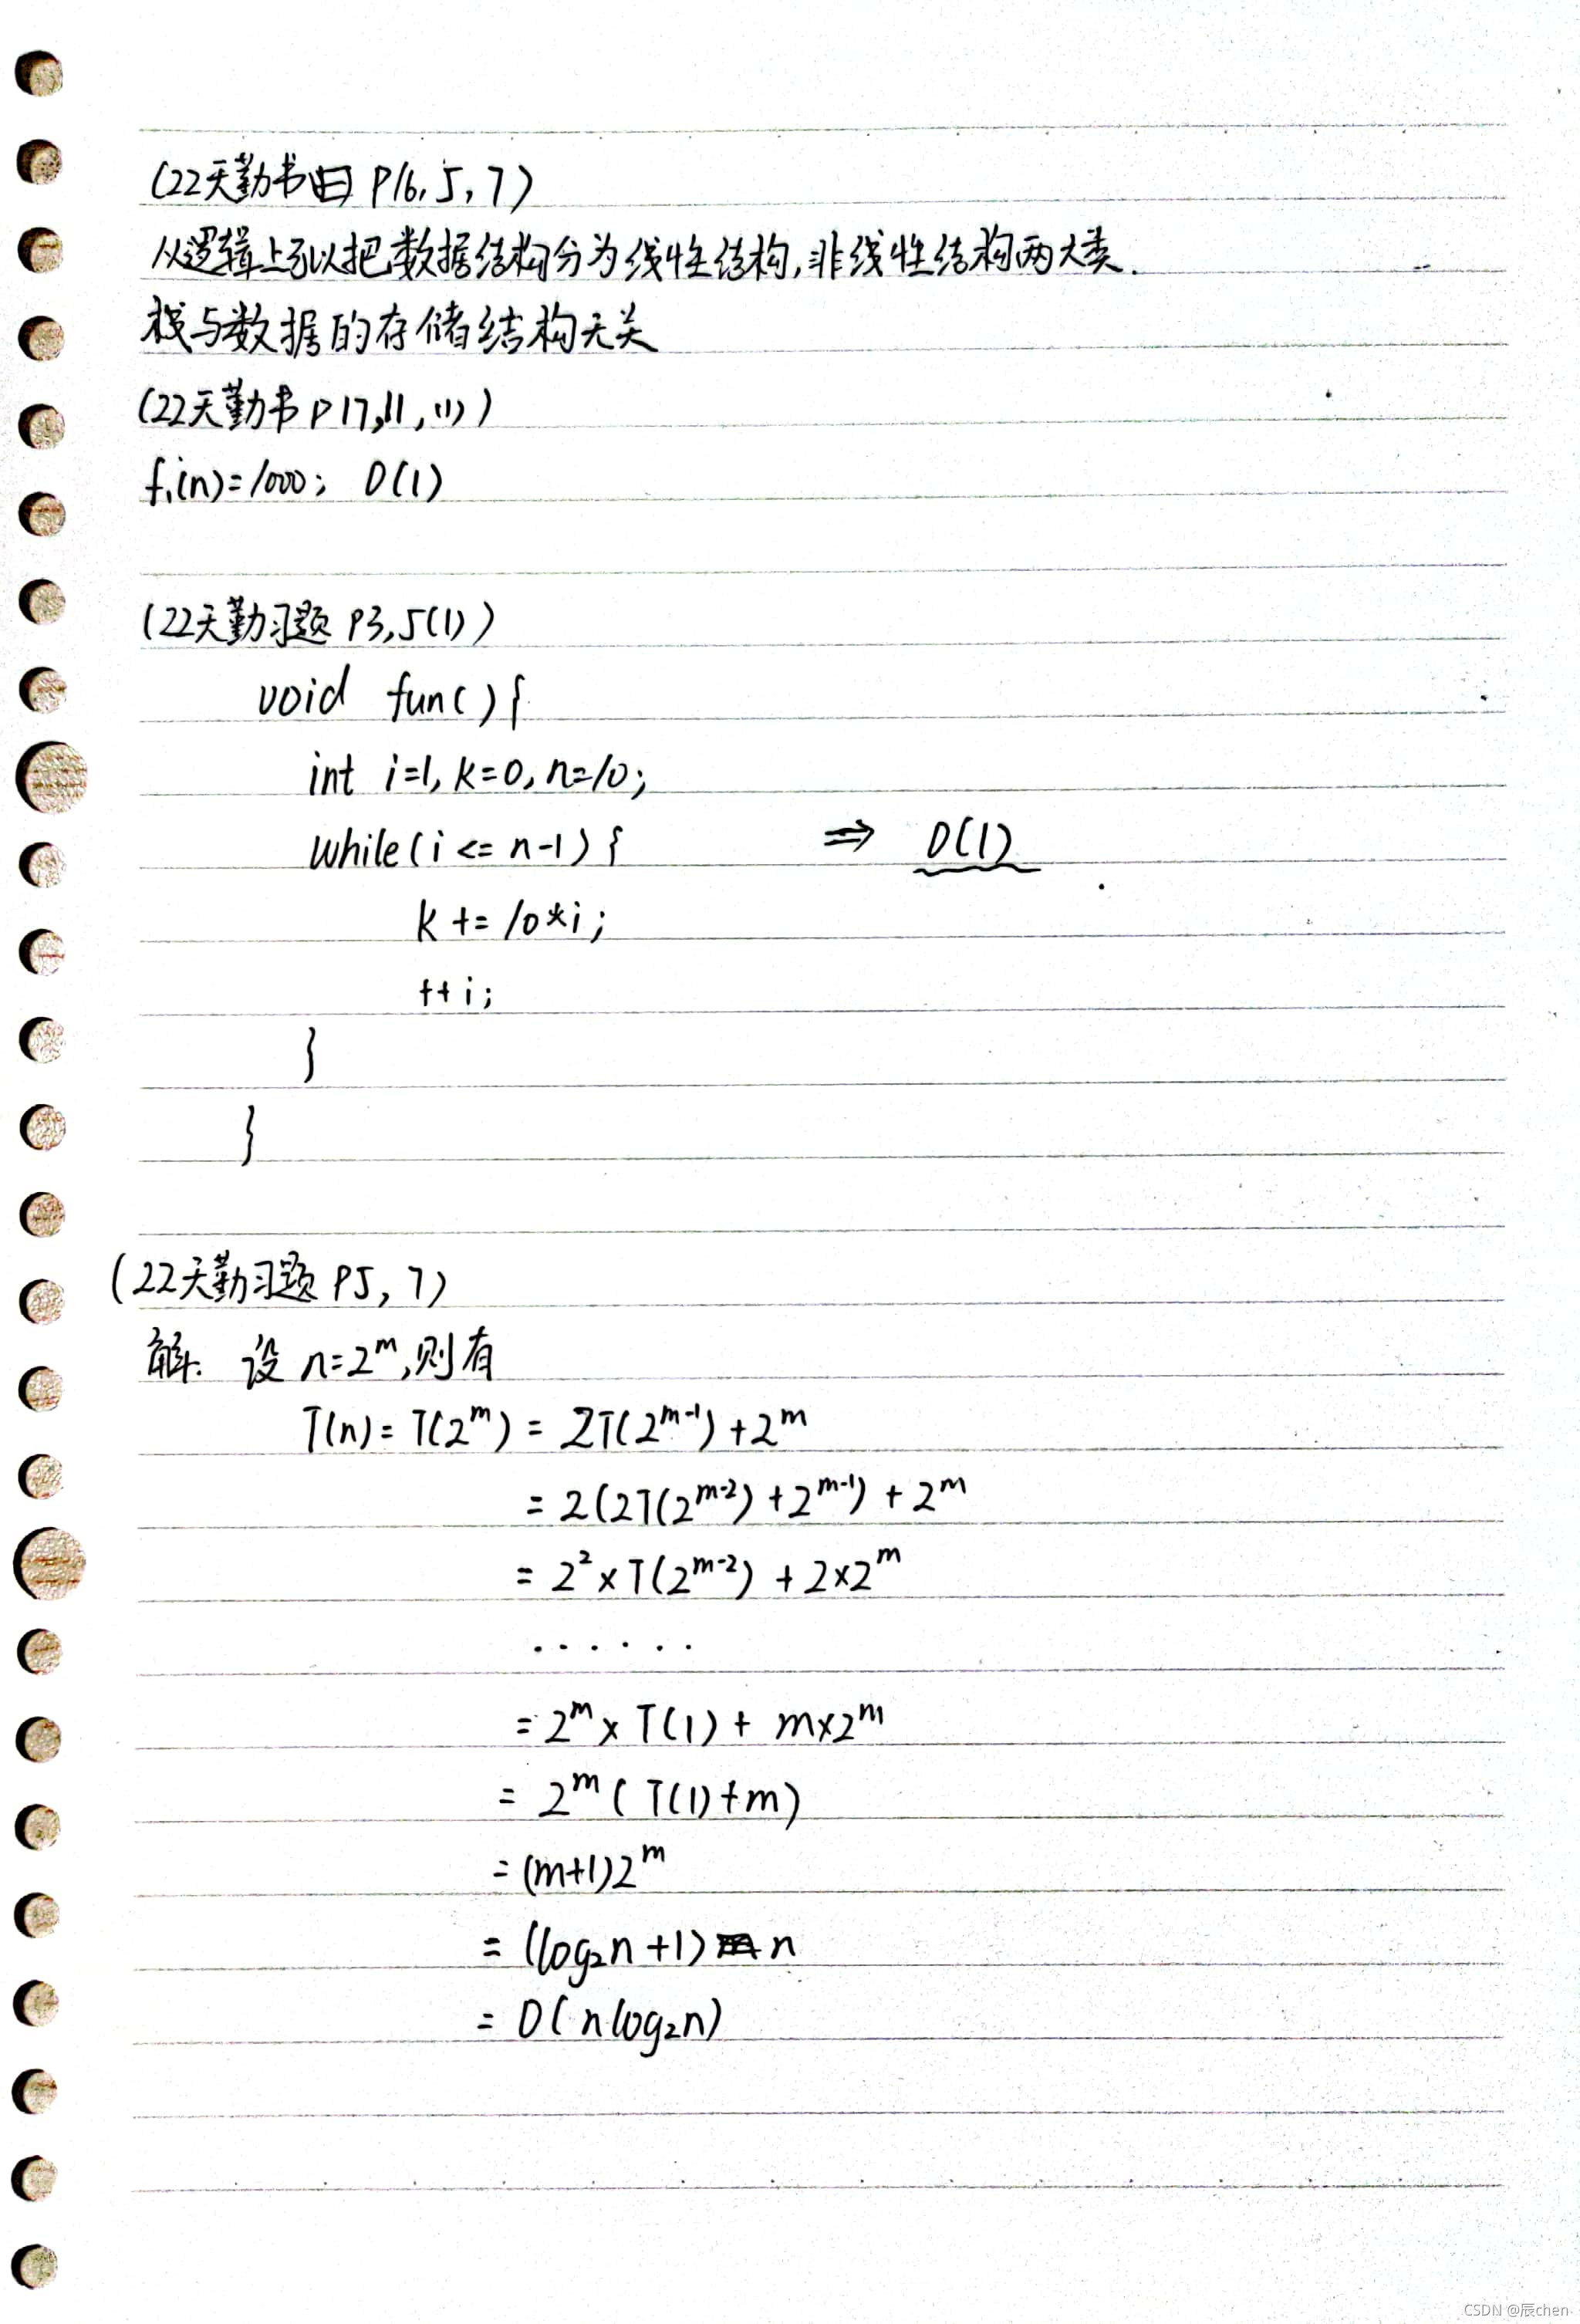 (22天勤书 P16, 5, 7)
从逻辑上可以把数据结构分为线性结构,非线性结构两大类.
栈与数据的存储结构无关
(22天勤书 P17,11,(1))
f₁(n)=1000; O(1)
(22天勤习题 P3,5(1))
void fun(){
int i=1, k=0, n=10;
while(i <= n-1){ ⇒ O(1)
k += 10*i;
++i;
}
}
(22天勤习题 P5, 7)
解. 设 n=2^m,则有
T(n)= T(2^m) = 2T(2^{m-1}) + 2^m
= 2(2T(2^{m-2}) + 2^{m-1}) + 2^m
= 2² × T(2^{m-2}) + 2×2^m
......
= 2^m × T(1) + m×2^m
= 2^m ( T(1)+m)
= (m+1)2^m
= (log₂n +1) n
= O( nlog₂n)
CSDN @辰chen